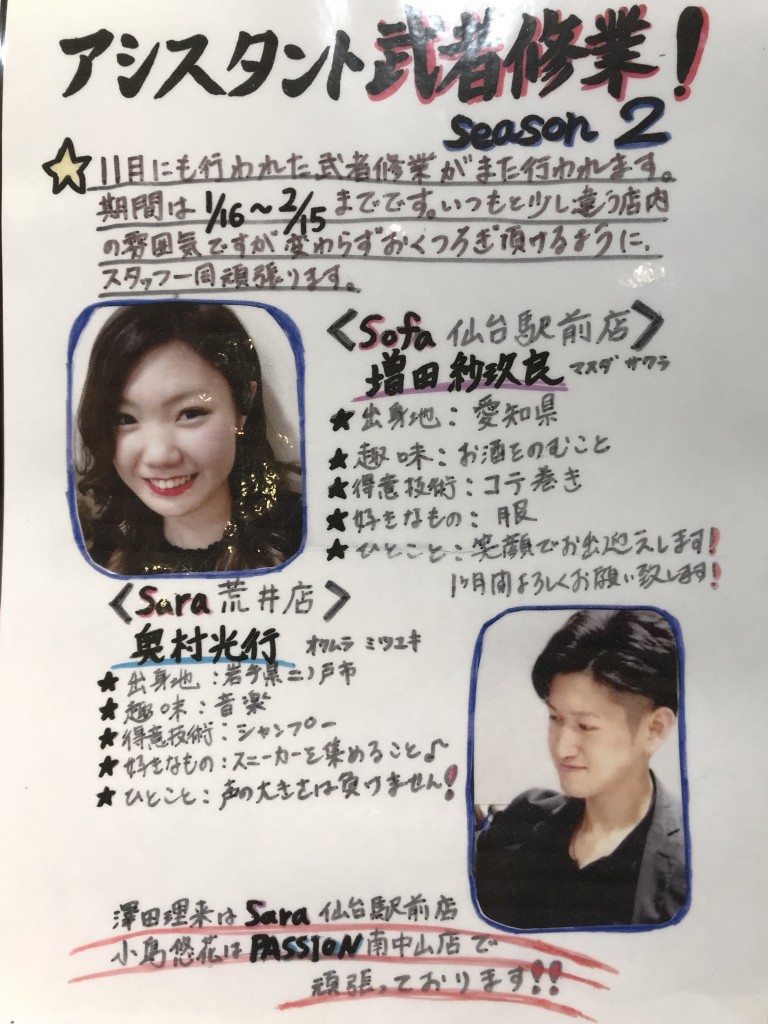 アシスタント武者修業!
season 2
11月にも行われた武者修業がまた行われます。
期間は1/16~2/15までです。いつもと少し違う店内
の雰囲気ですが変わらずおくつろぎ頂けるように、
スタッフ一同頑張ります。
<Sofa 仙台駅前店>
増田紗玖良 マスダ サクラ
★出身地:愛知県
★趣味:お酒をのむこと
★得意技術:コテ巻き
★好きなもの:服
★ひとこと:笑顔でお出迎えします!
1ヶ月間よろしくお願い致します!
<Sara 荒井店>
奥村光行 オクムラ ミツユキ
★出身地:岩手県二ノ戸市
★趣味:音楽
★得意技術:シャンプー
★好きなもの:スニーカーを集めること♪
★ひとこと:声の大きさは負けません!
澤田理来はSara 仙台駅前店
小島悠花はPASSION南中山店で
頑張っております!!